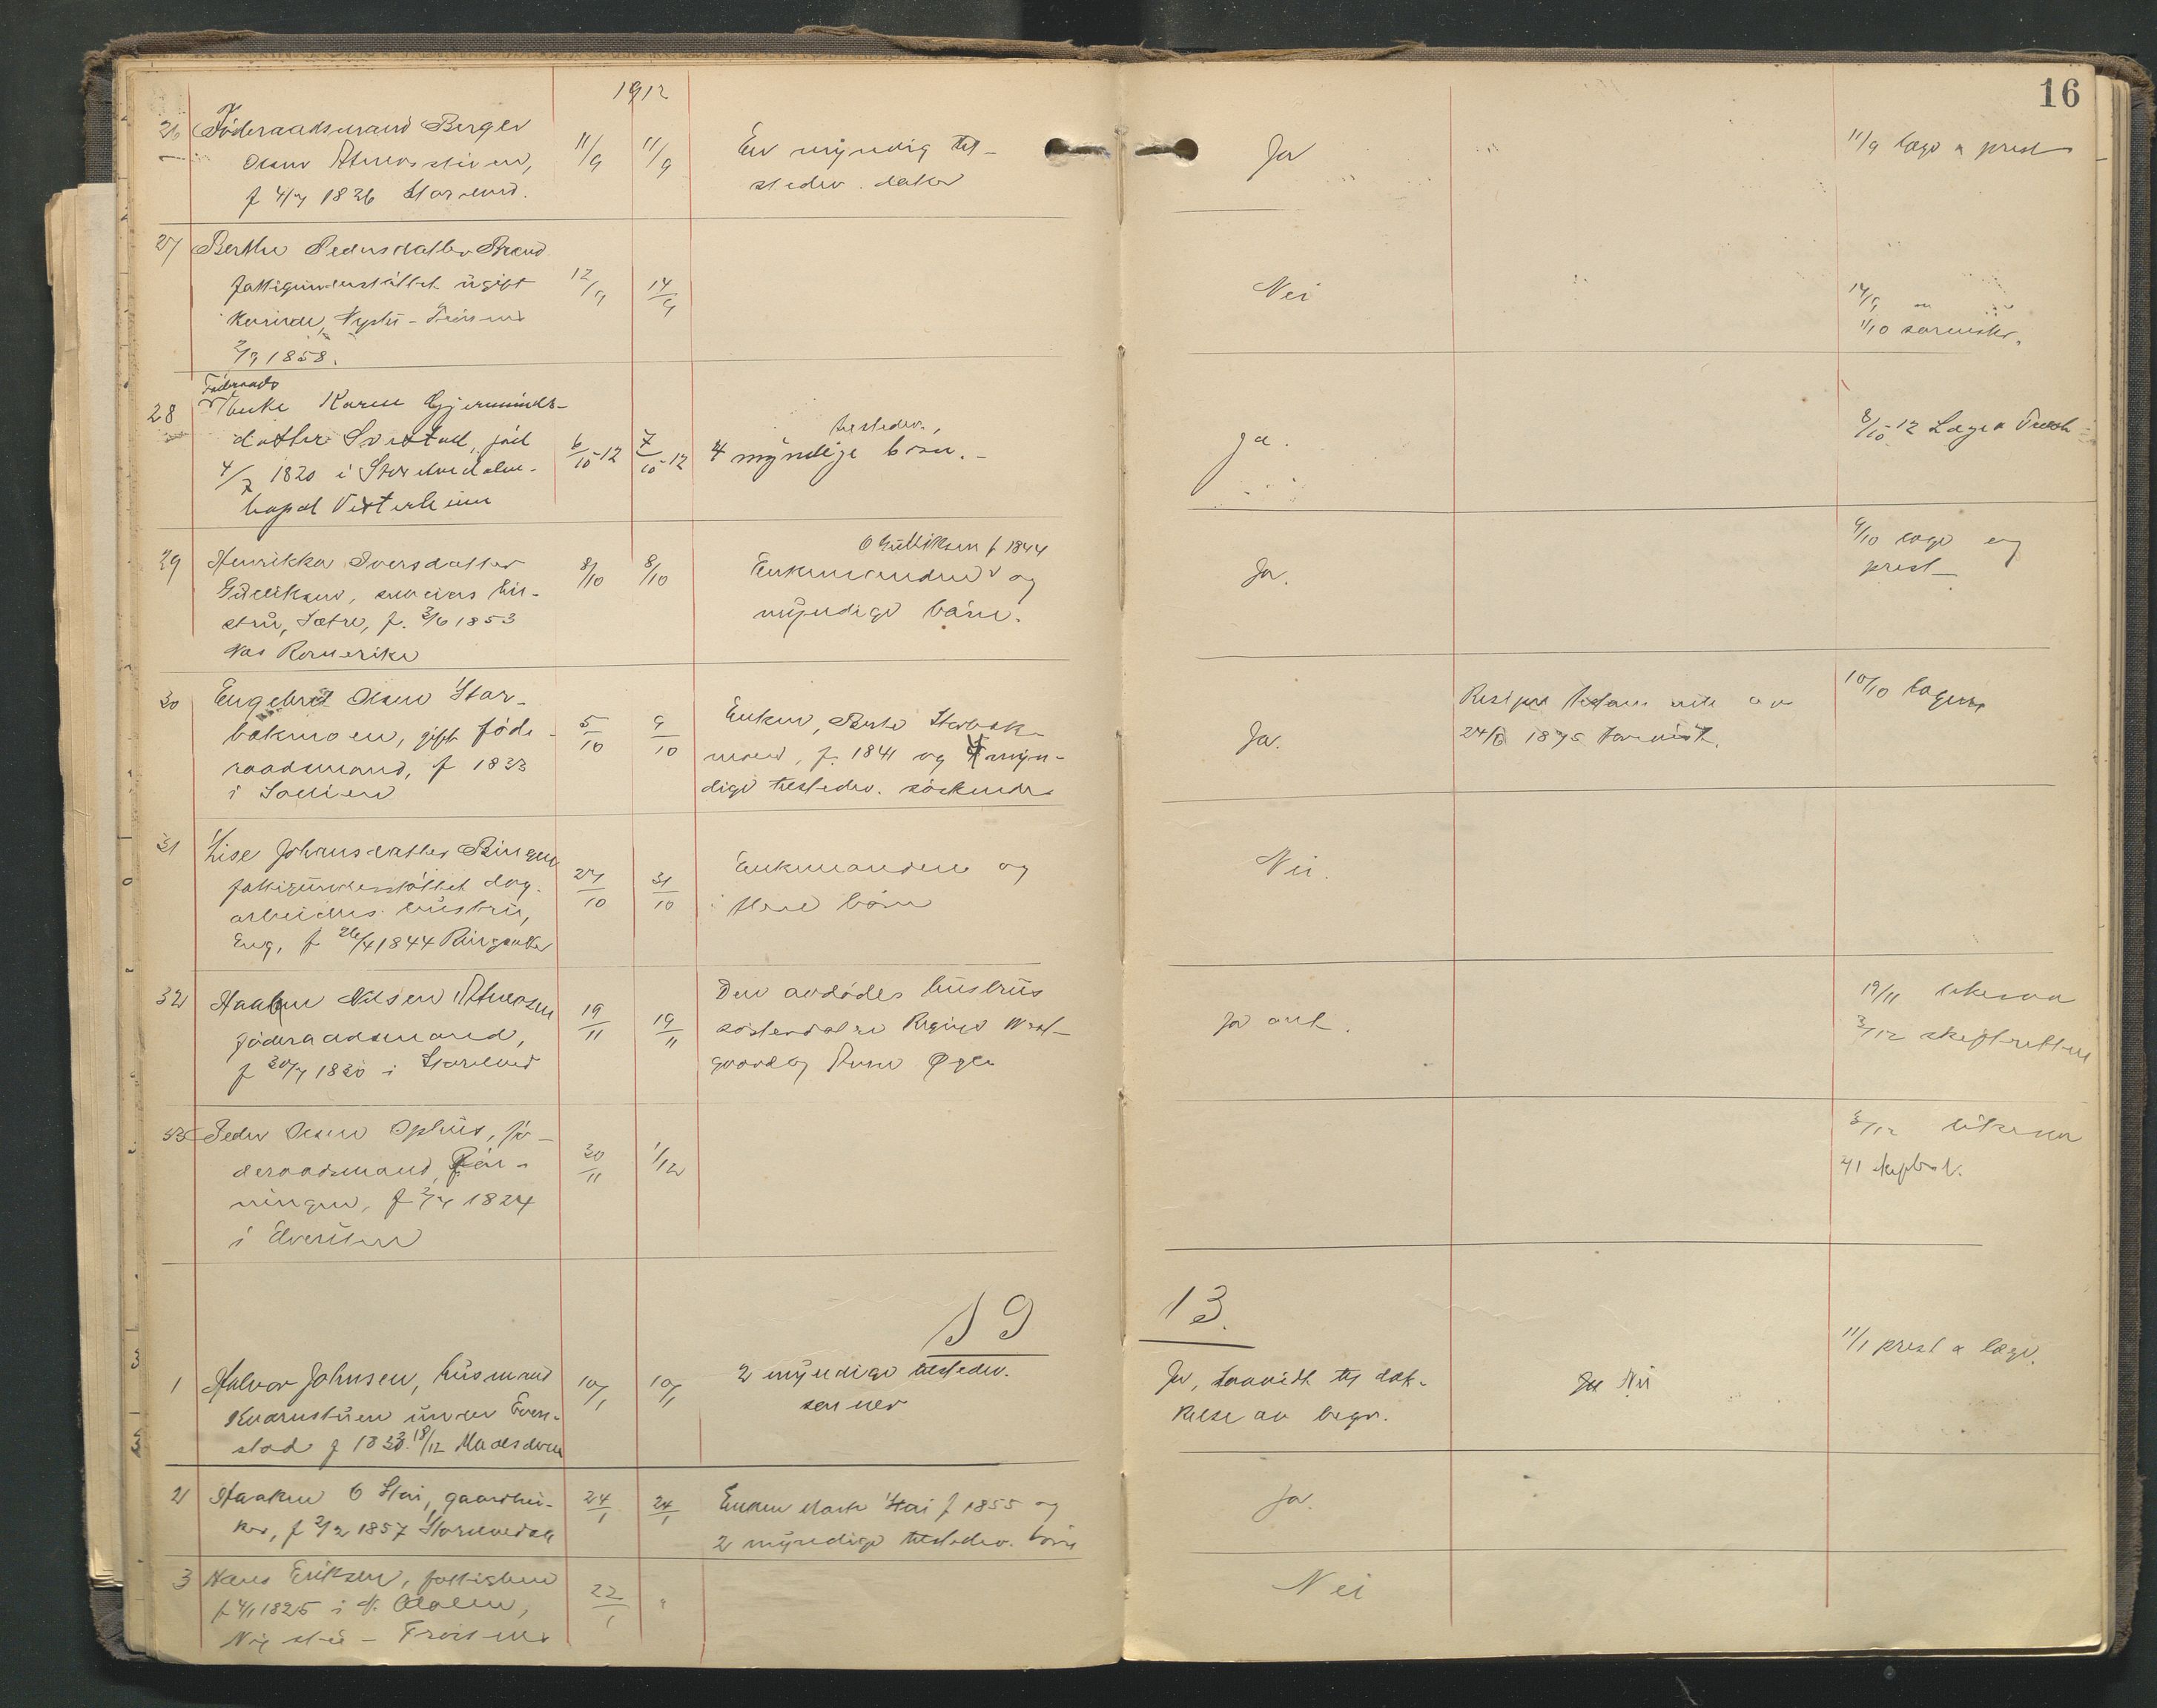 1912
16
26 Föderaadsmand Berger
Olsen
f 4/7 1826 Storelvd.
11/9
11/9
En myndig til-
stedev. datter
Ja
11/9 læge & prest
27 Berthe Pedersdatter
fattigunderstöttet ugift
kvinde, Nystu - Trönnes
2/9 1858.
12/9
14/9
Nei
14/9
1/10 sorenskr.
28 Föderaads
Enke Karen Gjermunds-
datter Svestad, föd
4/7 1820 i Storelvedalen-
bopæl Vesterheim
6/10-12
7/10-12
tilstedev.,
4 myndige börn.-
ja.
8/10-12 Læge & Presh
29 Henrikka Iversdatter
Gulliksen, hu-
stru, Sætre, f. 3/6 1853
Nes Romerike
8/10
8/10
O Gulliksen f 1844
Enkemanden og
myndige börn.
Ja.
9/10 læge og
prest
30 Engebret Olsen Stor-
bækmoen, gift föde-
raadsmand, f 1833
i Sollien
5/10
9/10
Enken, Berte Storbæk-
moen, f. 1841 og 4 myn-
dige tilstedev. söskende
Ja.
24/6 1875
10/10 lægen
31 Lise Johansdatter Bingen
fattigunderstöttet dag-
arbeiders hustru,
Eng, f 26/4 1844 Ringsaker
27/10
31/10
Enkemanden og
flere börn
Nei.
32 Haakon Nilsen
föderaadsmand,
f 20/7 1820 i Storelvd
19/11
19/11
Den avdödes hustrus
Westgaard og
Ja ant.
19/11
3/12 skifteretten
33 Peder Olsen Ophus, fö-
deraadsmand,
ningen, f 2/7 1824
i Elverum
30/11
1/12
3/12
4/1
19
13.
1 Halvor Johnsen, husmand
Kvernstuen under Even-
stad f 1833 18/12
10/1
10/1
2 myndige tilstedev.
sönner
Ja, saavidt til dæk-
kelse av begr.
Nei
11/1 prest & læge.
2 Haakon O Stai, gaardbru-
ker, f 2/2 1857 Storelvedal
24/1
24/1
Enken Stai f 1855 og
2 myndige tilstedev. börn
Ja.
3 Hans Eriksen, fattiglem
f 4/1 1825 i
Nystu - Trönnes
22/1
"
Nei